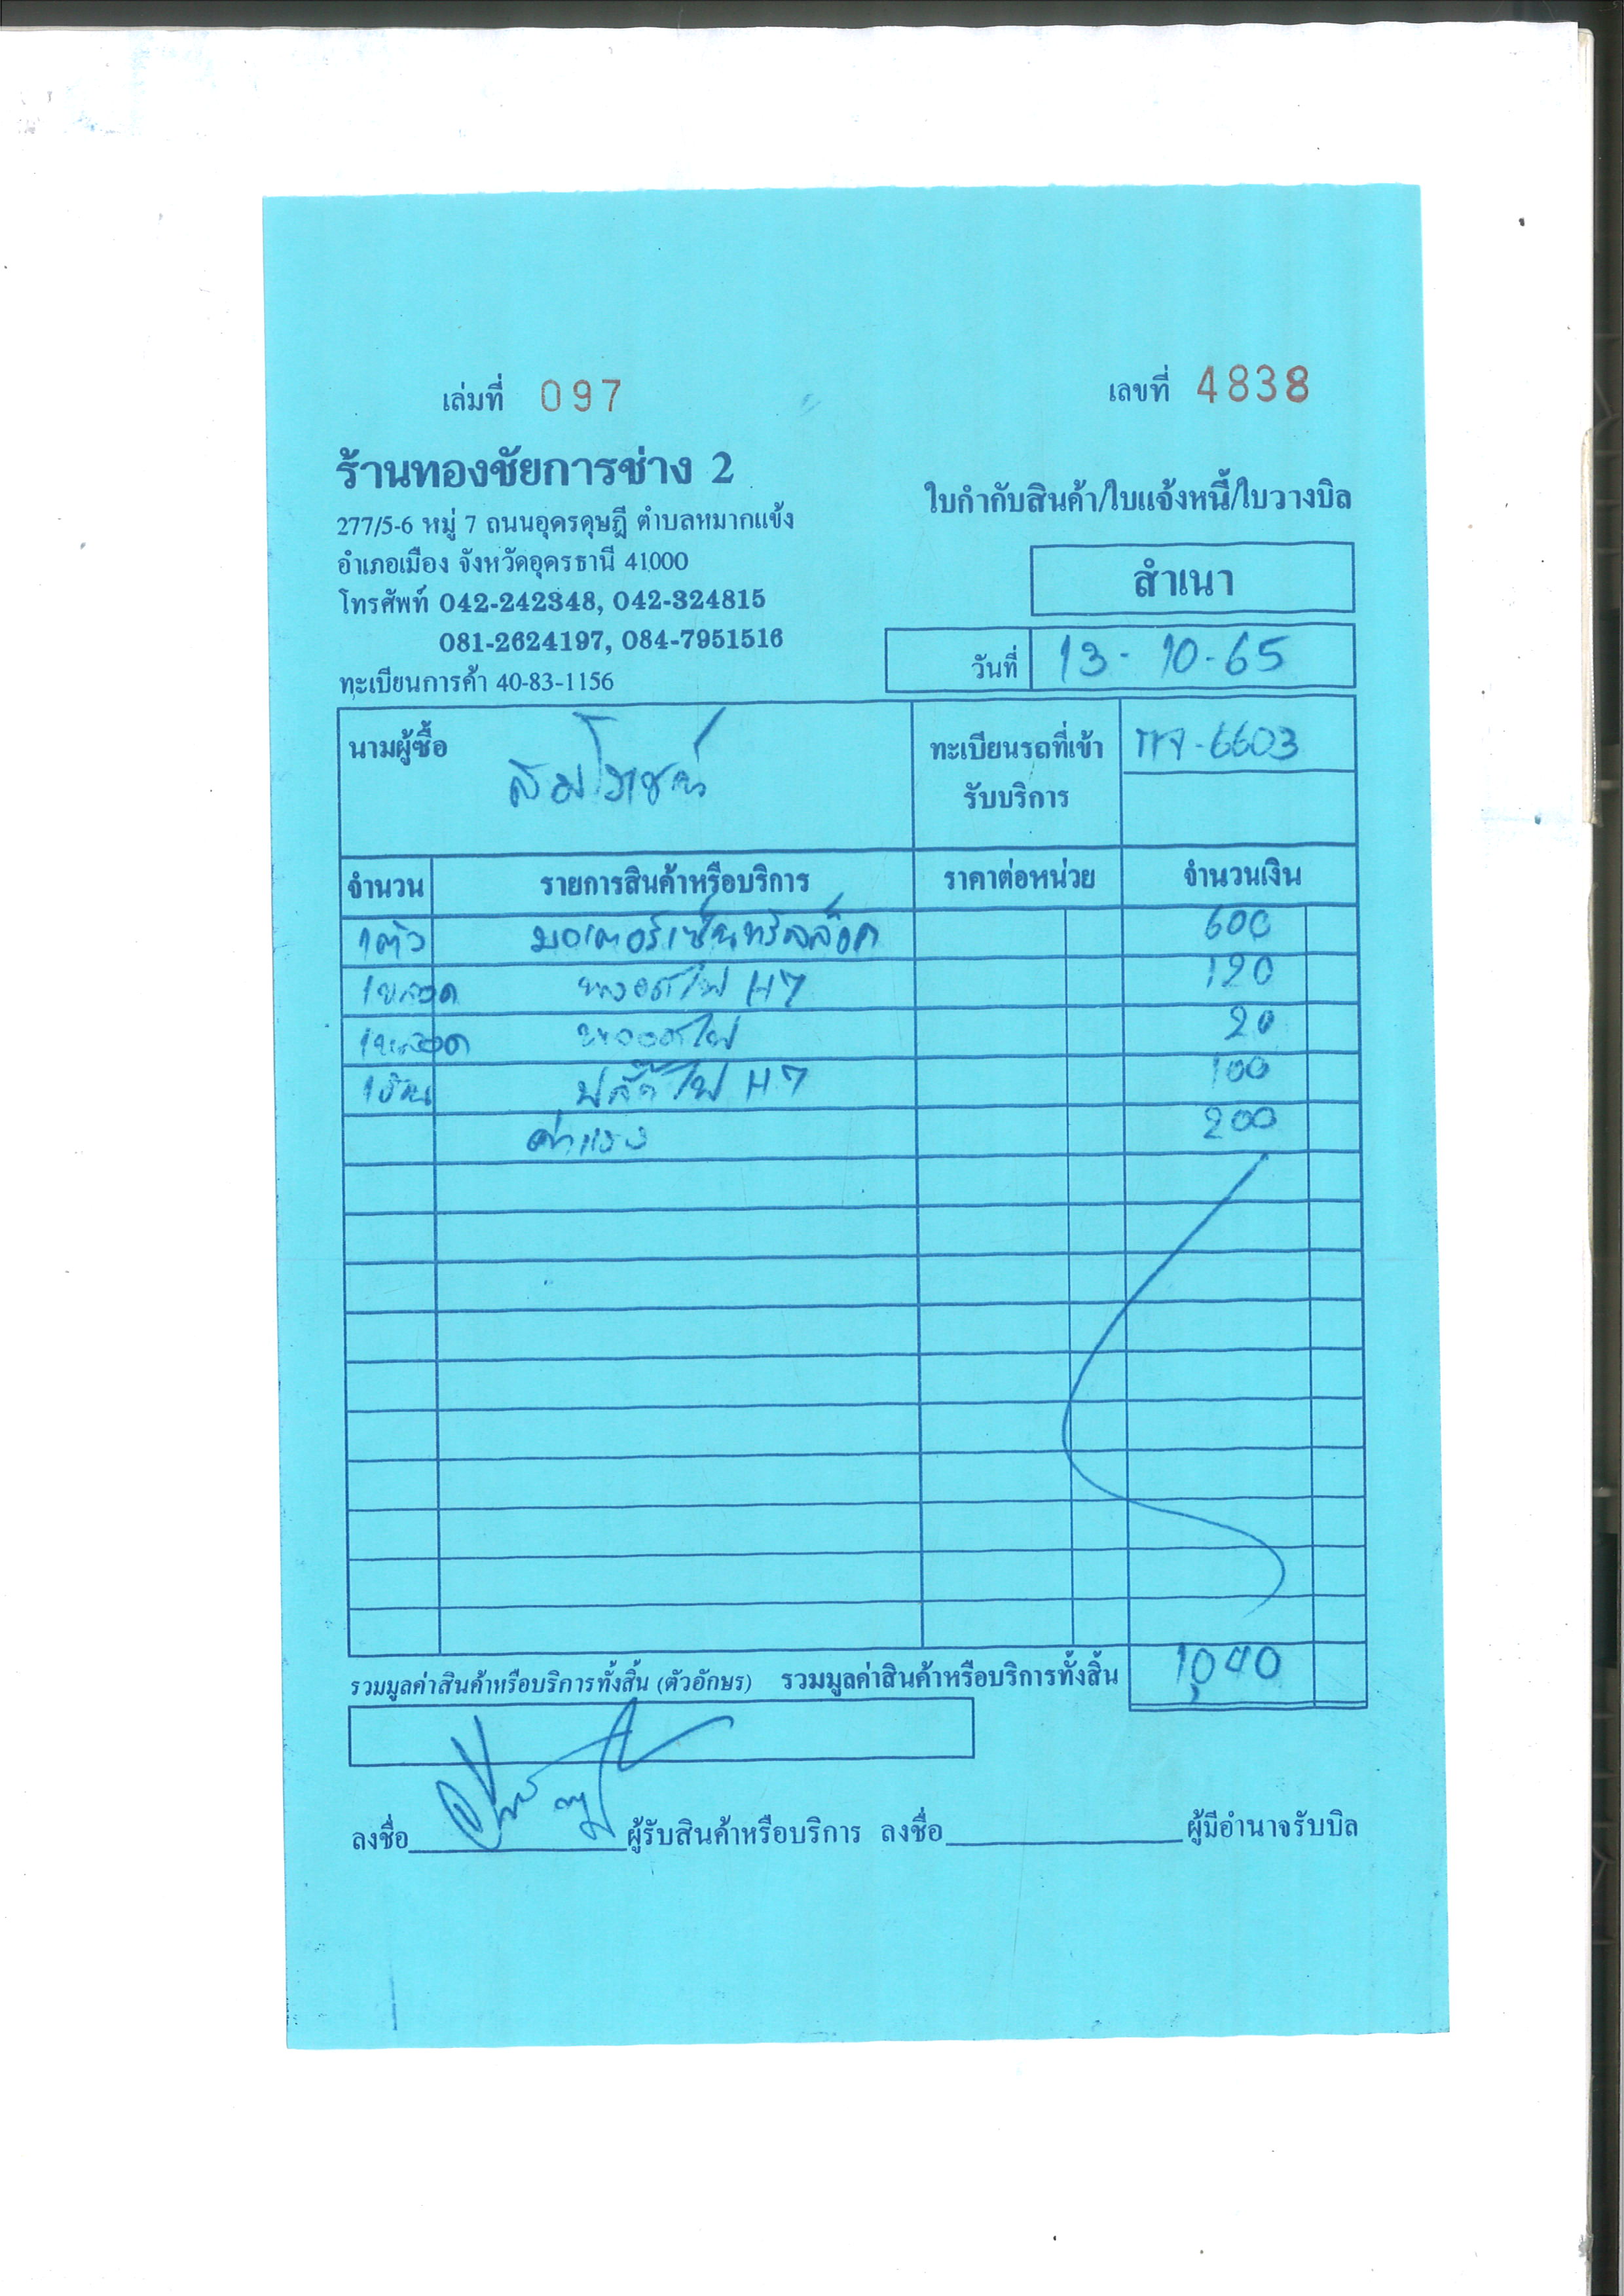 เล่มที่ 097
เลขที่ 4838
ร้านทองชัยการช่าง 2
277/5-6 หมู่ 7 ถนนอุดรดุษฎี ตำบลหมากแข้ง
อำเภอเมือง จังหวัดอุดรธานี 41000
โทรศัพท์ 042-242348, 042-324815
081-2624197, 084-7951516
ทะเบียนการค้า 40-83-1156
ใบกำกับสินค้า/ใบแจ้งหนี้/ใบวางบิล
สำเนา
วันที่ 13-10-65
นามผู้ซื้อ
ทะเบียนรถที่เข้ารับบริการ 6603
จำนวน รายการสินค้าหรือบริการ ราคาต่อหน่วย จำนวนเงิน
1ตัว มอเตอร์เซ็นทรัลล็อค 600
1หลอด หลอดไฟ H7 120
1หลอด หลอดไฟ 20
1อัน ปลั๊กไฟ H7 100
ค่าแรง 200
รวมมูลค่าสินค้าหรือบริการทั้งสิ้น (ตัวอักษร) รวมมูลค่าสินค้าหรือบริการทั้งสิ้น 1,040
ลงชื่อ ผู้รับสินค้าหรือบริการ ลงชื่อ ผู้มีอำนาจรับบิล